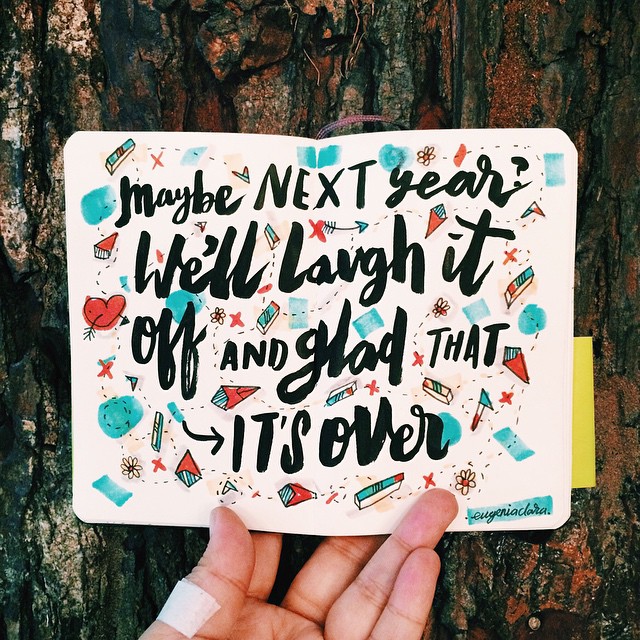 maybe NEXT year?
We'll Laugh it
off AND glad THAT
IT'S OVer
eugeniaclara.